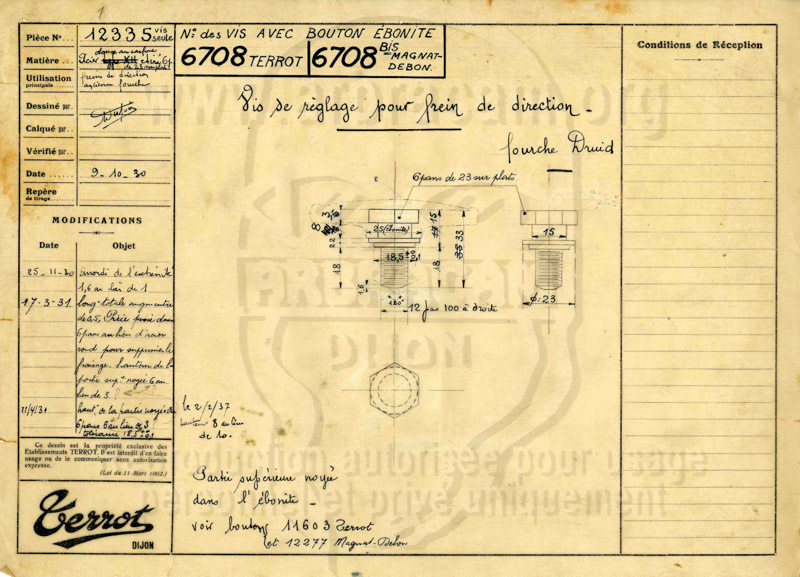 1
Pièce N° 12335 vis seule
Matière
étiré 6p
de 23 sur plats
Utilisation principale
frein de direction
ancienne fourche
Dessiné par
Calqué par
Vérifié par
Date 9-10-30
Repère de tirage
MODIFICATIONS
Date Objet
25-11-30 arrondi de l'extrémité
1,6 au lieu de 1
17-3-31 long totale augmentée
de 0,5. Pièce prise dans
6 pans au lieu d'acier
rond pour supprimer le
fraisage. hauteur de la
partie sup. noyée 6 au
lieu de 3
11/4/31 haut. de la partie noyée de
6 pans 6 au lieu de 3
Ce dessin est la propriété exclusive des
Etablissements TERROT. Il est interdit d'en faire
usage ou de le communiquer sans autorisation
expresse.
(Loi du 11 Mars 1902.)
Terrot
DIJON
N° DES VIS AVEC BOUTON ÉBONITE
6708 TERROT 6708 BIS MAGNAT-DEBON.
Vis de réglage pour frein de direction -
fourche Druid
6 pans de 23 sur plats
8
25 (ébonite)
15
2,2
18
18,5
18
33
1,6
120°
12 pas 100 à droite
15
ø-23
le 2/2/37
hauteur 8 au lieu
de 10.
Partie supérieure noyée
dans l'ébonite -
voir boutons 11603 Terrot
et 12277 Magnat-Debon
Conditions de Réception
www.arbracam.org
ARBRACAM
DIJON
Reproduction autorisée pour usage
personnel et privé uniquement